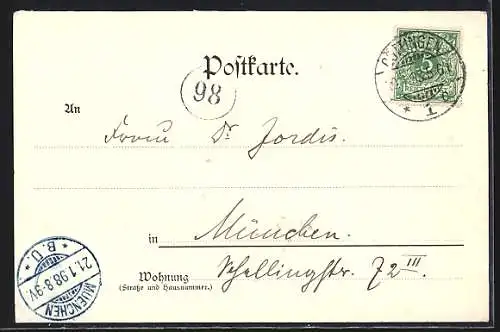 Postkarte.
98
GÖTTINGEN
* 1
5
An
Frau Dr Jordis.
in München.
Wohnung Schellingstr. 72 III
(Straße und Hausnummer.)
MUENCHEN
21.1.98.8-9V.
* B.O. *